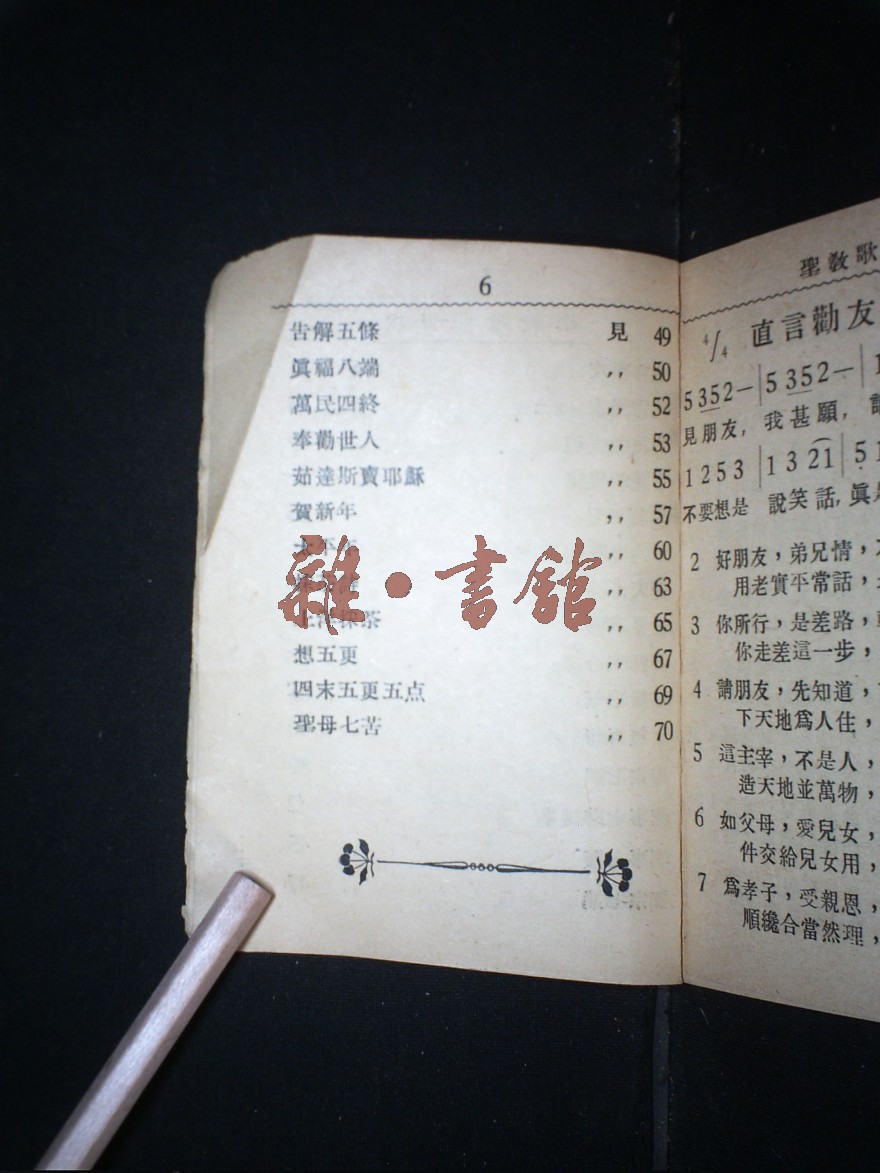 6
告解五條 見 49
眞福八端 ,, 50
萬民四終 ,, 52
奉勸世人 ,, 53
茹達斯賣耶穌 ,, 55
賀新年 ,, 57
,, 60
,, 63
採茶 ,, 65
想五更 ,, 67
四末五更五点 ,, 69
聖母七苦 ,, 70
雜·書舘
聖教歌
4/4 直言勸友
5 3 5 2 — | 5 3 5 2 — |
見朋友, 我甚願,
1 2 5 3 | 1 3 2 1 | 5
不要想是 說笑話, 眞
2 好朋友，弟兄情，
用老實平常話，
3 你所行，是差路，
你走差這一步，
4 請朋友，先知道，
下天地爲人住，
5 這主宰，不是人，
造天地並萬物，
6 如父母，愛兒女，
件交給兒女用，
7 爲孝子，受親恩，
順纔合當然理，